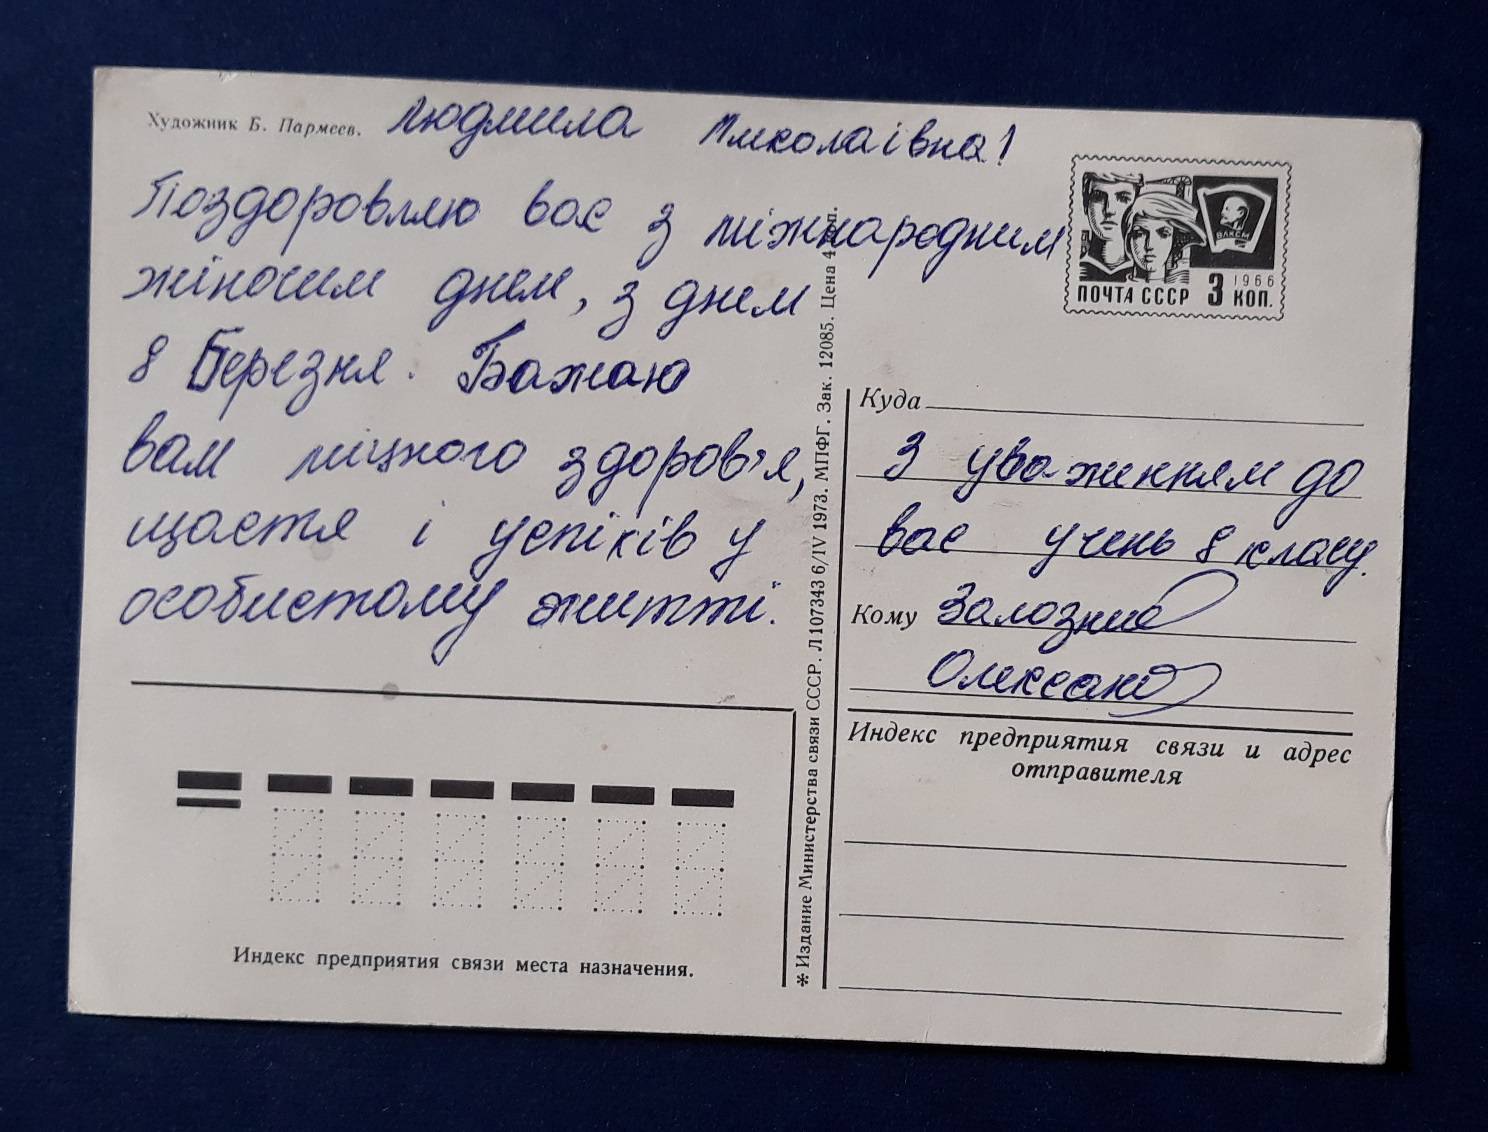 Художник Б. Пармеев.
Людмила Миколаївна!
Поздоровляю вас з міжнародним
жіночим днем, з днем
8 Березня. Бажаю
вам міцного здоров'я,
щастя і успіхів у
особистому житті.
ВЛКСМ
1966
ПОЧТА СССР 3 КОП.
Куда
З уваженням до
вас учень 8 класу.
Кому Залозний
Олександ
Индекс предприятия связи и адрес
отправителя
Индекс предприятия связи места назначения.
* Издание Министерства связи СССР. Л 107343 6/IV 1973. МПФГ. Зак. 12085. Цена 4